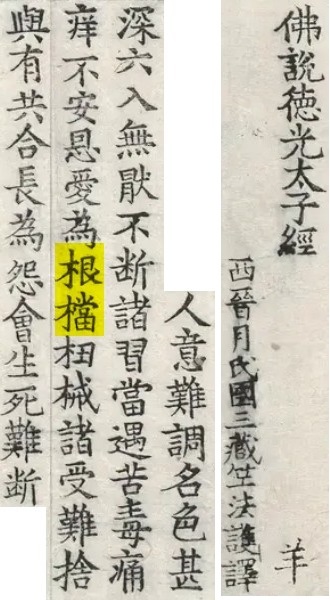 佛說徳光太子經
西晉月氏國三藏竺法護譯 羊
人意難調名色甚
深六入無猒不断諸習當遇苦毒痛
痒不安恩愛為根檔杻械諸受難捨
與有共合長為怨會生死難断